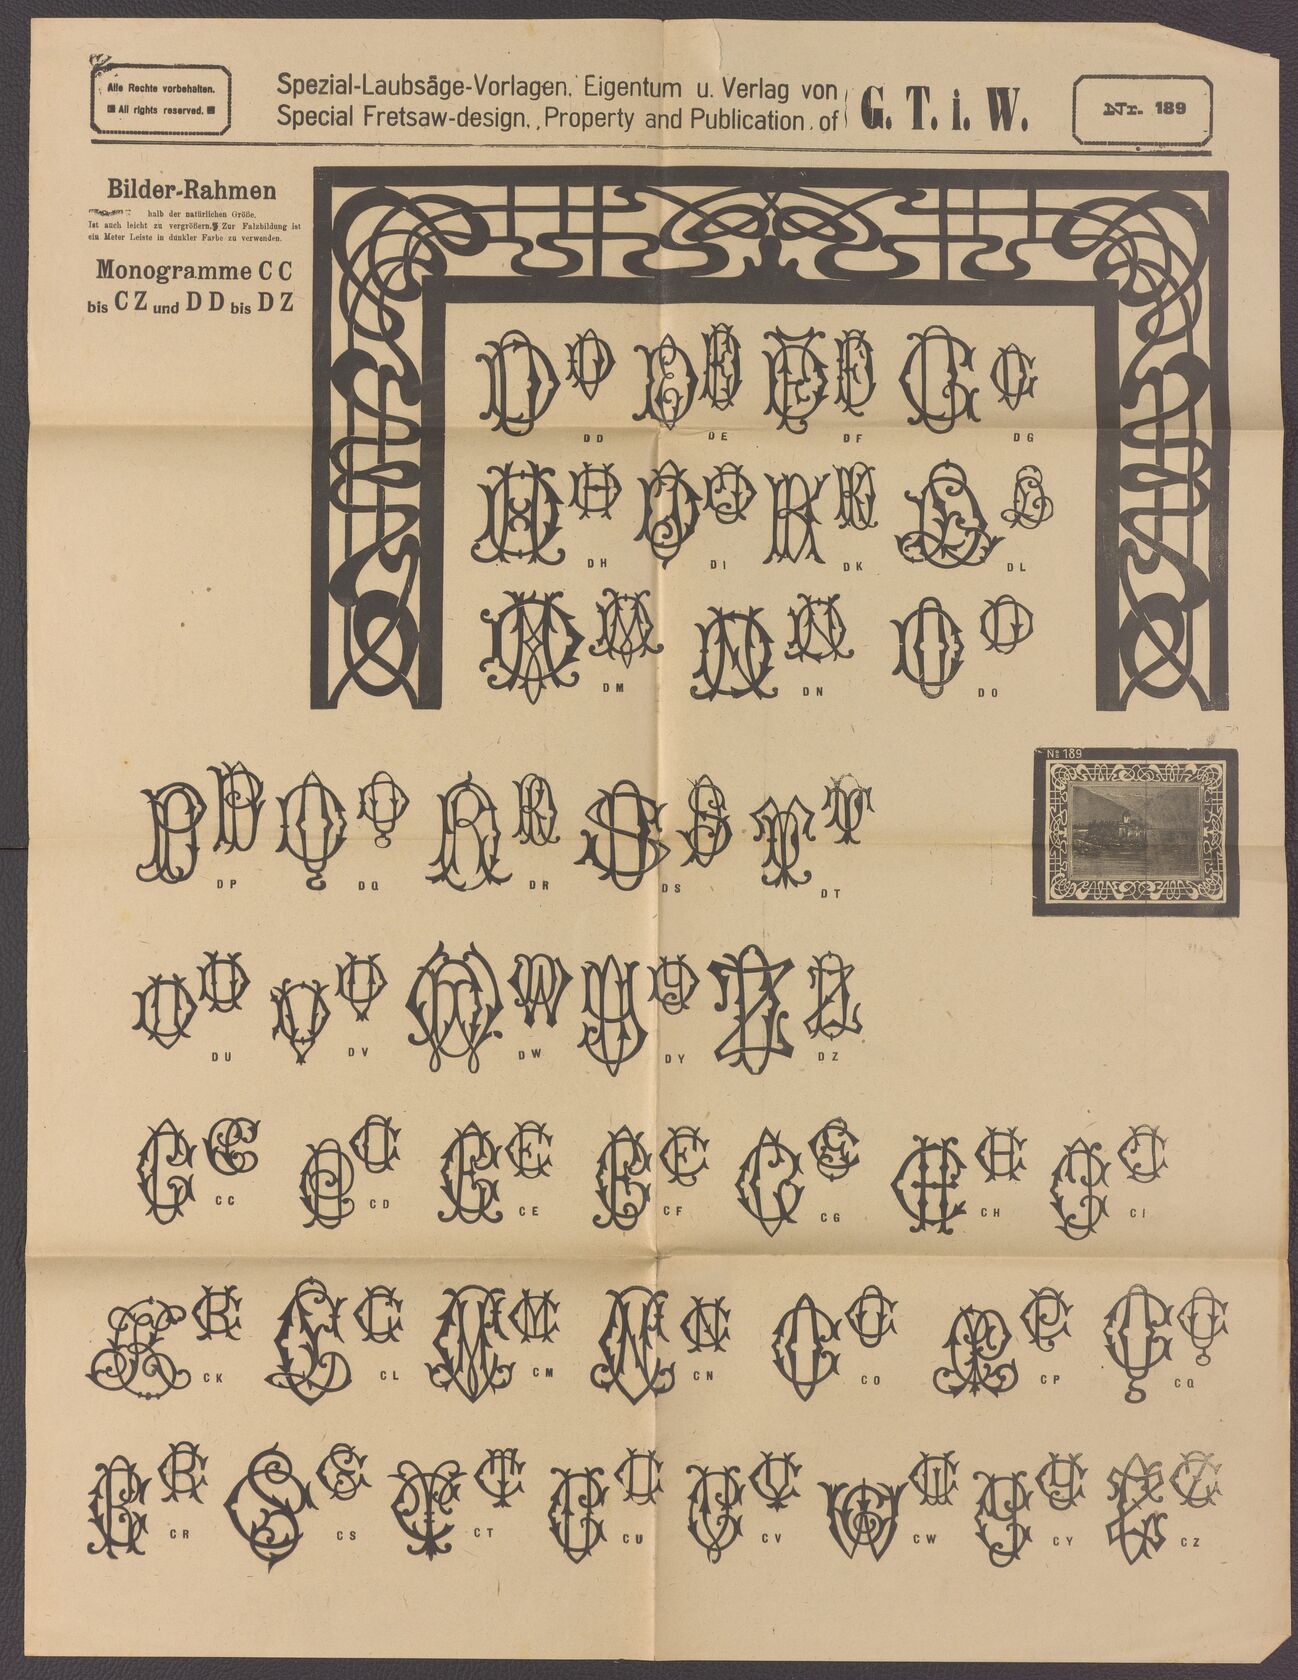 Alle Rechte vorbehalten.
All rights reserved.
Spezial-Laubsäge-Vorlagen. Eigentum u. Verlag von
Special Fretsaw-design. Property and Publication of
G. T. i. W.
Nr. 189
Bilder-Rahmen
halb der natürlichen Größe.
Ist auch leicht zu vergrößern. Zur Falzbildung ist
ein Meter Leiste in dunkler Farbe zu verwenden.
Monogramme C C
bis C Z und D D bis D Z
DD DE DF DG
DH DI DK DL
DM DN DO
No 189
DP DQ DR DS DT
DU DV DW DY DZ
CC CD CE CF CG CH CI
CK CL CM CN CO CP CQ
CR CS CT CU CV CW CY CZ